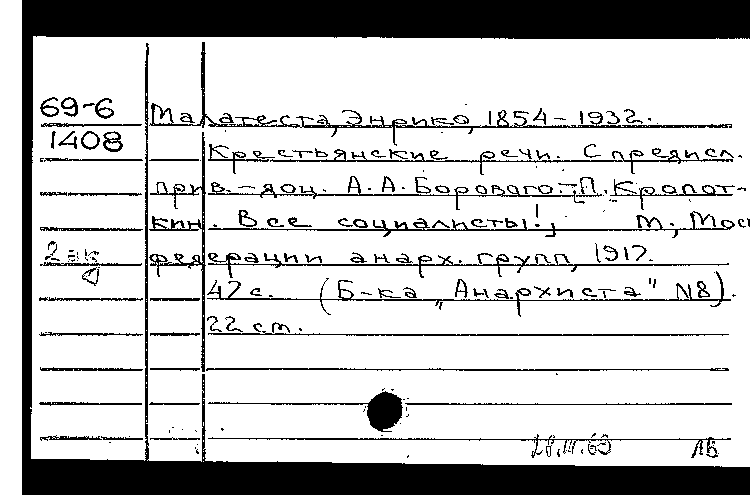 69-6 Малатеста, Энрико, 1854-1932.
1408 Крестьянские речи. С предисл.
прив.-доц. А.А. Борового.-П. Кропот-
кин. Все социалисты!, М., Мос
2 эк федерации анарх. групп, 1917.
47 с. (Б-ка „Анархиста" N8).
22 см.
28.III.63 ЛВ